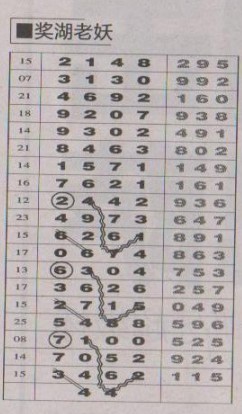 ■奖湖老妖
15 2 1 4 8 2 9 5
07 3 1 3 0 9 9 2
21 4 6 9 2 1 6 0
18 9 2 0 7 9 3 8
14 9 3 0 2 4 9 1
21 8 4 6 3 8 0 2
14 1 5 7 1 1 4 9
16 7 6 2 1 1 6 1
12 2 4 4 2 9 3 6
23 4 9 7 3 6 4 7
15 6 2 6 1 8 9 1
17 0 6 7 4 8 6 3
13 6 3 0 4 7 5 3
17 3 6 2 6 2 5 7
15 2 7 1 5 0 4 9
25 5 4 8 8 5 9 6
08 7 1 0 0 5 2 5
14 7 0 5 2 9 2 4
15 3 4 6 2 1 1 5
4 4